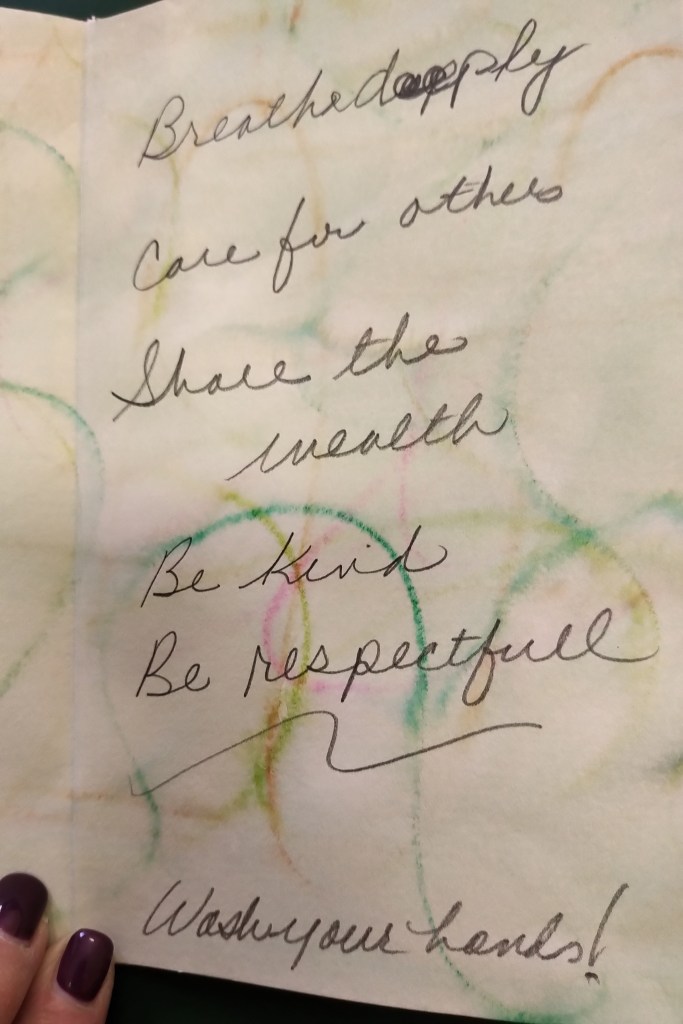 Breathe deeply
Care for others
Share the
wealth
Be Kind
Be respectfull
Wash your hands!